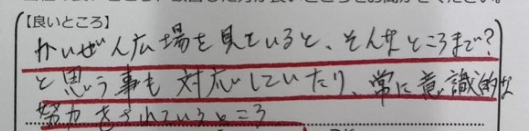 【良いところ】
かいぜん広場を見ていると、そんなところまで?
と思う事も対応していたり、常に意識的な
努力をされているところ